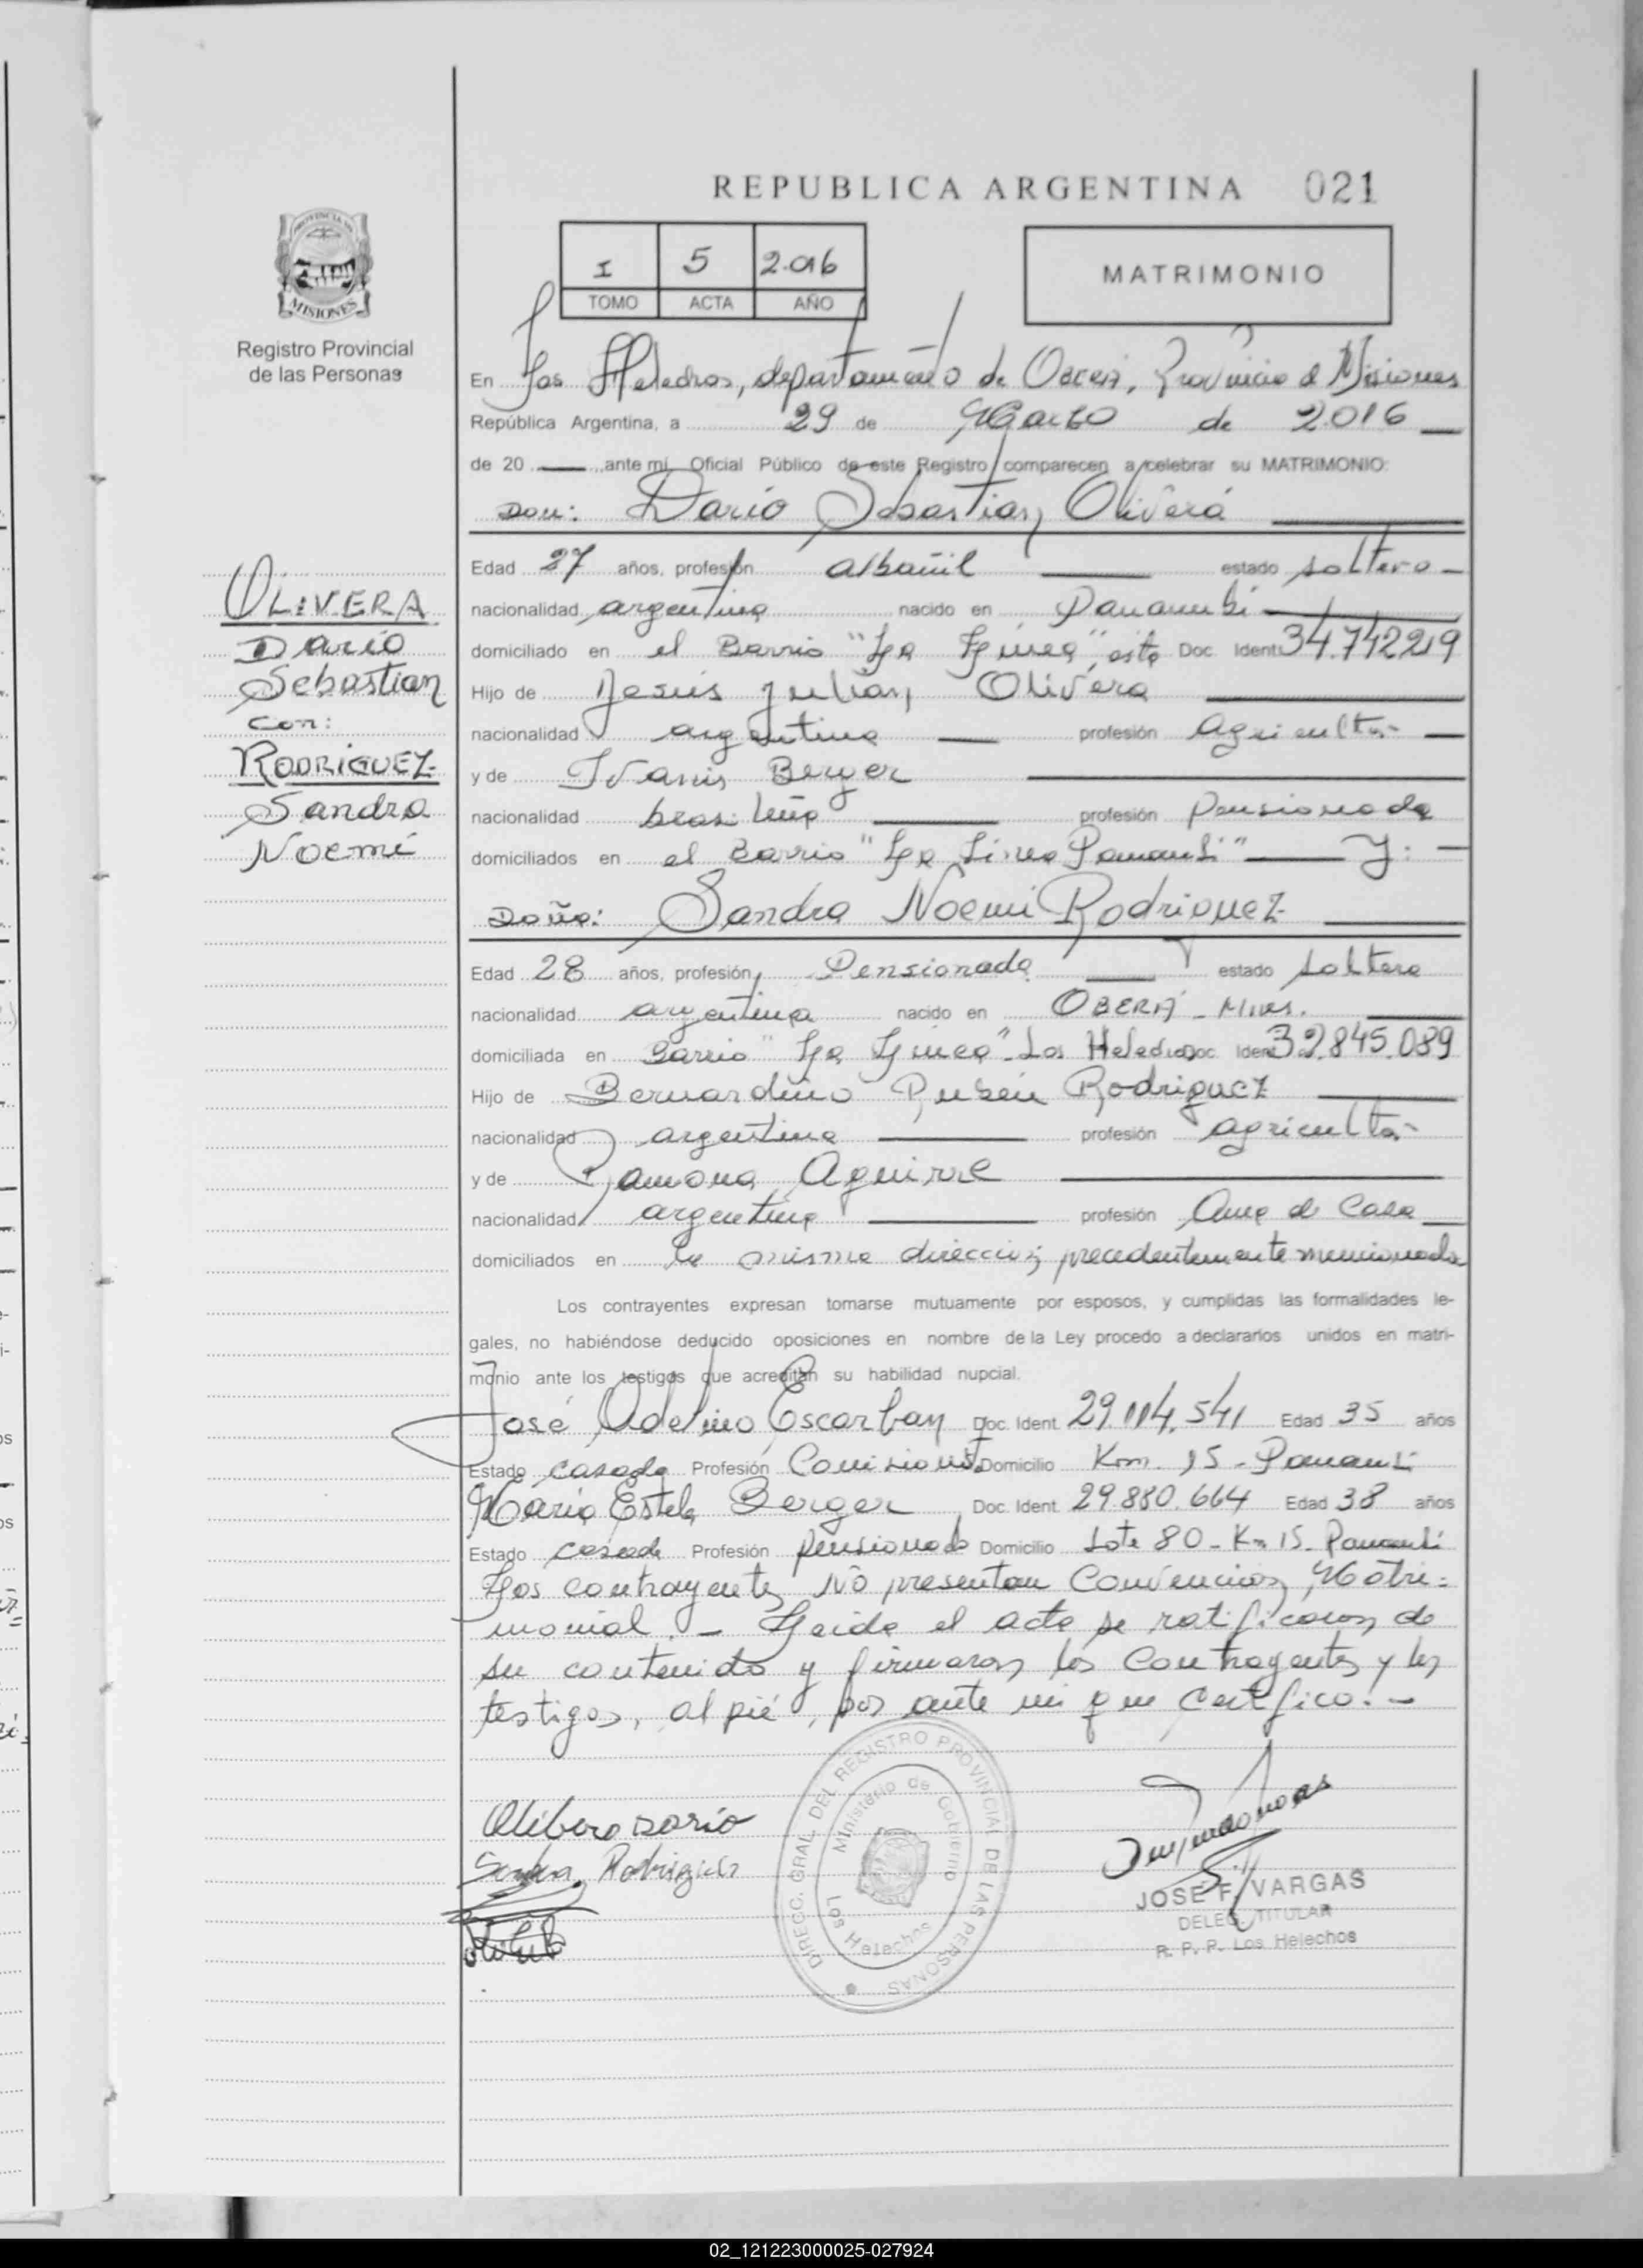 REPUBLICA ARGENTINA 021
I 5 2.016
TOMO ACTA AÑO
MATRIMONIO
PROVINCIA DE
MISIONES
Registro Provincial
de las Personas
En Los Helechos, departamento de Oberá, Provincia de Misiones
República Argentina, a 29 de Marzo de 2.016
de 20 ante mi, Oficial Público de este Registro comparecen a celebrar su MATRIMONIO:
Don: Dario Sebastian Olivera
Edad 27 años, profesión albañil estado soltero
nacionalidad argentina nacido en Panambi
domiciliado en el Barrio "La Linea", este Doc. Ident. 34.742219
Hijo de Jesús Julian Olivera
nacionalidad argentina profesión agricultor
y de Ivanis Berger
nacionalidad brasileña profesión Pensionada
domiciliados en el Barrio "La Linea Panambi" Y:
Doña: Sandra Noemi Rodriguez
Edad 28 años, profesión Pensionada estado soltera
nacionalidad argentina nacido en OBERÁ - Mnes.
domiciliada en Barrio "La Linea" - Los Helechos Doc. Ident. 32.845.089
Hijo de Bernardino Rubén Rodriguez
nacionalidad argentina profesión agricultor
y de Ramona Aguirre
nacionalidad argentina profesión Ama de Casa
domiciliados en la misma direccion, precedentemente mencionada
Los contrayentes expresan tomarse mutuamente por esposos, y cumplidas las formalidades le-
gales, no habiéndose deducido oposiciones en nombre de la Ley procedo a declararlos unidos en matri-
monio ante los testigos que acreditan su habilidad nupcial.
José Adelino Escarbay Doc. Ident. 29.114.541 Edad 35 años
Estado casado Profesión Comisionista Domicilio Km. 15 - Panambi
Maria Estela Berger Doc. Ident. 29.880.664 Edad 38 años
Estado casada Profesión pensionada Domicilio Lote 80 - Km 15 - Panambi
Los contrayentes No presentan Convencion Matri=
monial. - Leida el acta se ratificaron de
su contenido y firmaron los Contrayentes y los
testigos, al pié, por ante mi que certifico. -
OLIVERA
Dario
Sebastian
con:
RODRIGUEZ
Sandra
Noemi
Olibera Dario
Sandra Rodriguez
DIRECC. GRAL. DEL REGISTRO PROVINCIAL DE LAS PERSONAS
Ministerio de Gobierno
Los Helechos
JOSE F. VARGAS
DELEG. TITULAR
R. P. P. Los Helechos
02_121223000025-027924